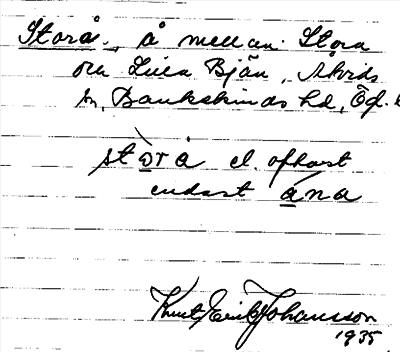 Storå, å mellan Stora
och Lilla Bjän, Åtvids
sn, Bankekinds hd, Ög.
stòrå el. oftast
endast åna
Knut-Erik Johansson
1935